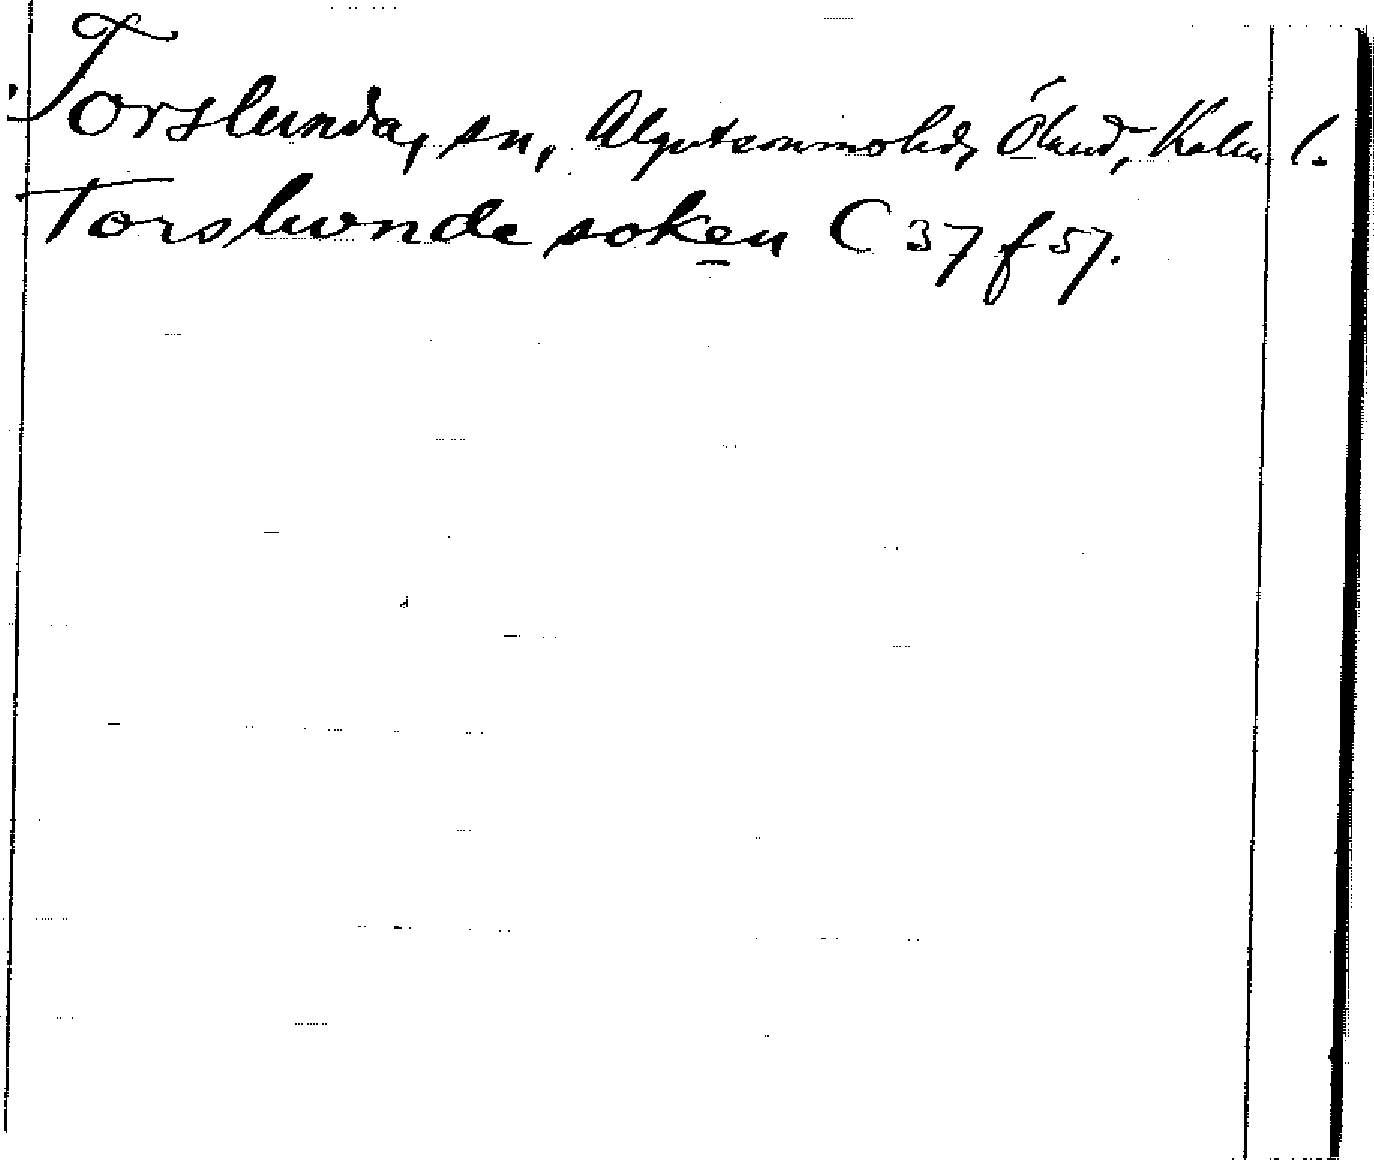 Torslunda, sn, Algutsrums hd, Öland, Kalm l.
Torslunde soken C 37 f 57.